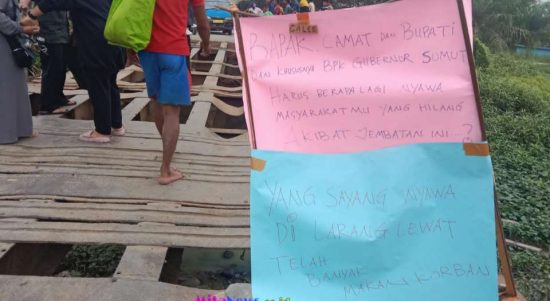 CALEG
BAPAK CAMAT DAN BUPATI
DAN KHUSUSNYA BPK GUBERNOR SUMUT
HARUS BERAPA LAGI NYAWA
MASYARAKATMU YANG HILANG
AKIBAT JEMBATAN INI - ?
YANG SAYANG NYAWA
DI LARANG LEWAT
TELAH
BANYAK
MAKAN KORBAN